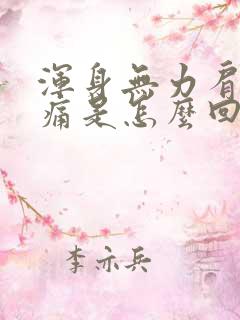 渾身無力肩
痛是怎麼回
李亦兵